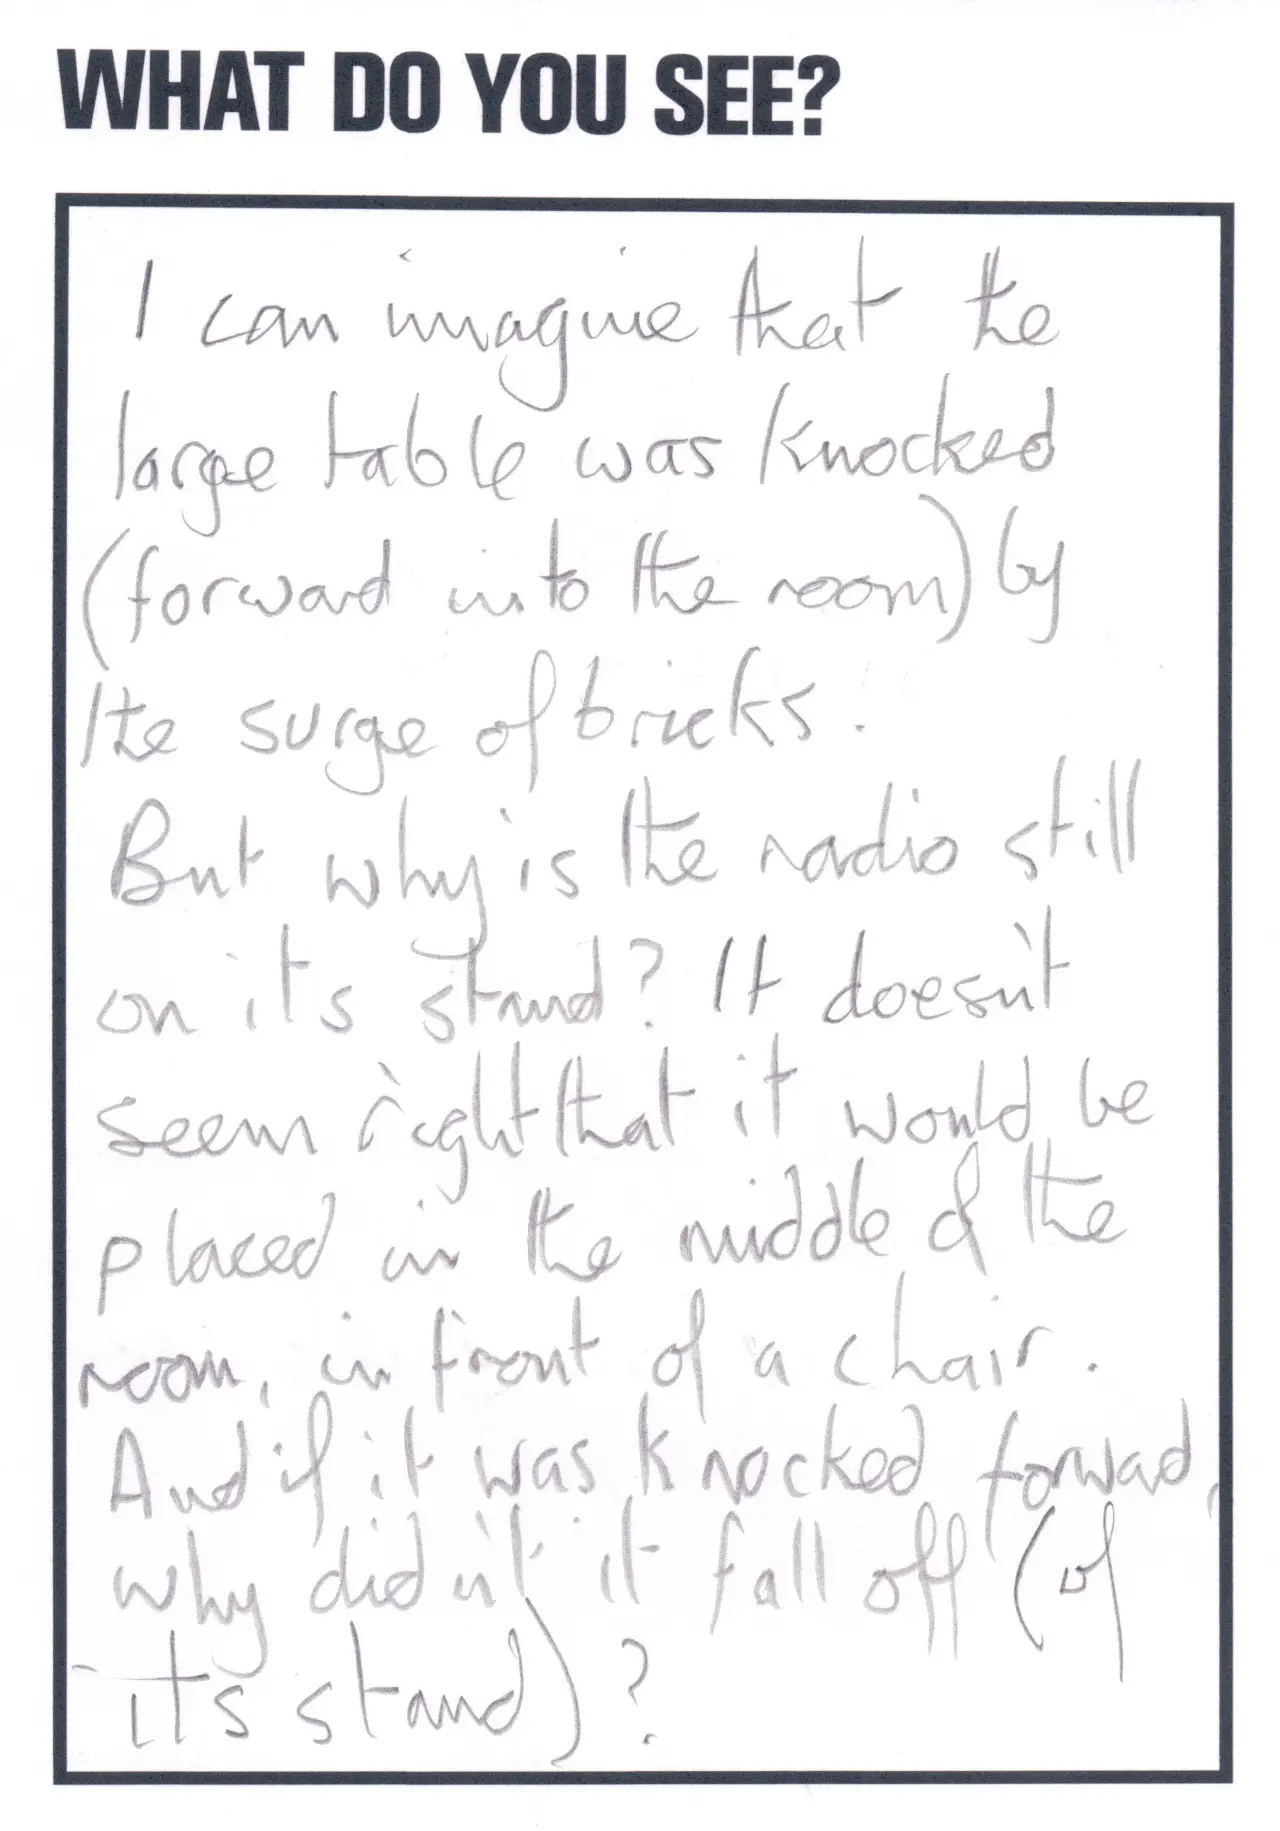 WHAT DO YOU SEE?
I can imagine that the
large table was knocked
(forward into the room) by
the surge of bricks.
But why is the radio still
on its stand? It doesn't
seem right that it would be
placed in the middle of the
room, in front of a chair.
And if it was knocked forward,
why didn't it fall off (of
its stand)?